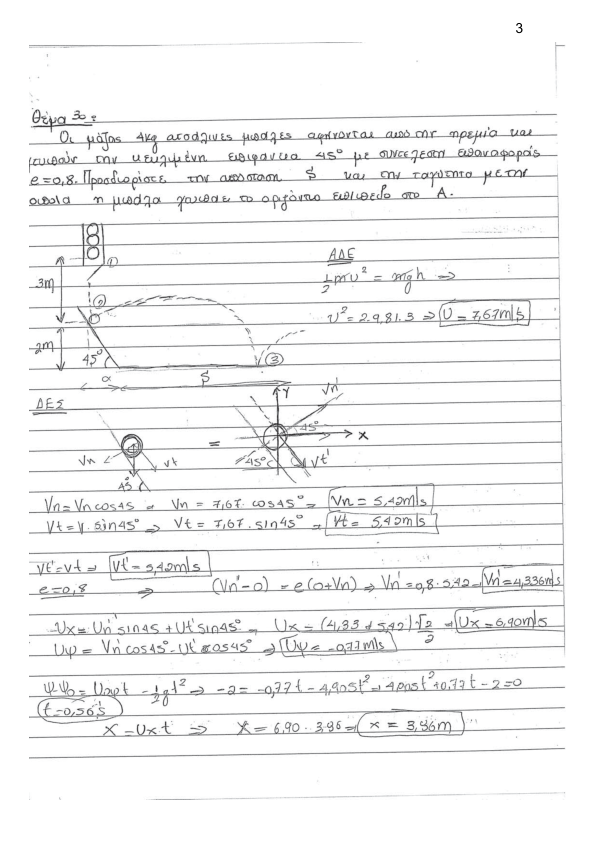 3
Θέμα 3ο:
Οι μάζης 4kg ατσάλινες μπάλες αφήνονται από την ηρεμία και
χτυπούν την κεκλιμένη επιφάνεια 45° με συντελεστή επαναφοράς
e=0,8. Προσδιορίστε την απόσταση S και την ταχύτητα με την
οποία η μπάλα χτυπάει το οριζόντιο επίπεδο στο A.
①
ΑΔΕ
3m
½mυ² = mgh ⇒
②
υ² = 2.9,81.3 ⇒ υ = 7,67m/s
2m
45°
③
α
S
ΔΕΣ
Y
Vn'
45°
X
Vn
Vt
=
45°
Vt'
45°
Vn = Vn cos45 ⇒ Vn = 7,67. cos45° ⇒ Vn = 5,42m/s
Vt = V. sin45° ⇒ Vt = 7,67. sin45° ⇒ Vt = 5,42m/s
Vt' = Vt ⇒ Vt' = 5,42m/s
e=0,8 ⇒ (Vn'-0) = e(0+Vn) ⇒ Vn' = 0,8.5,42 ⇒ Vn' = 4,336m/s
Ux = Un' sin45 + Ut' sin45° ⇒ Ux = (4,33+5,42)√2/2 ⇒ Ux = 6,90m/s
Uψ = Vn' cos45° - Ut' cos45° ⇒ Uψ = -0,77m/s
Ψ-Ψ0 = U0ψt - ½gt² ⇒ -2 = -0,77t - 4,905t² ⇒ 4,905t²+0,77t-2=0
t=0,56s
X = Ux t ⇒ X = 6,90.3,96 ⇒ x = 3,96m